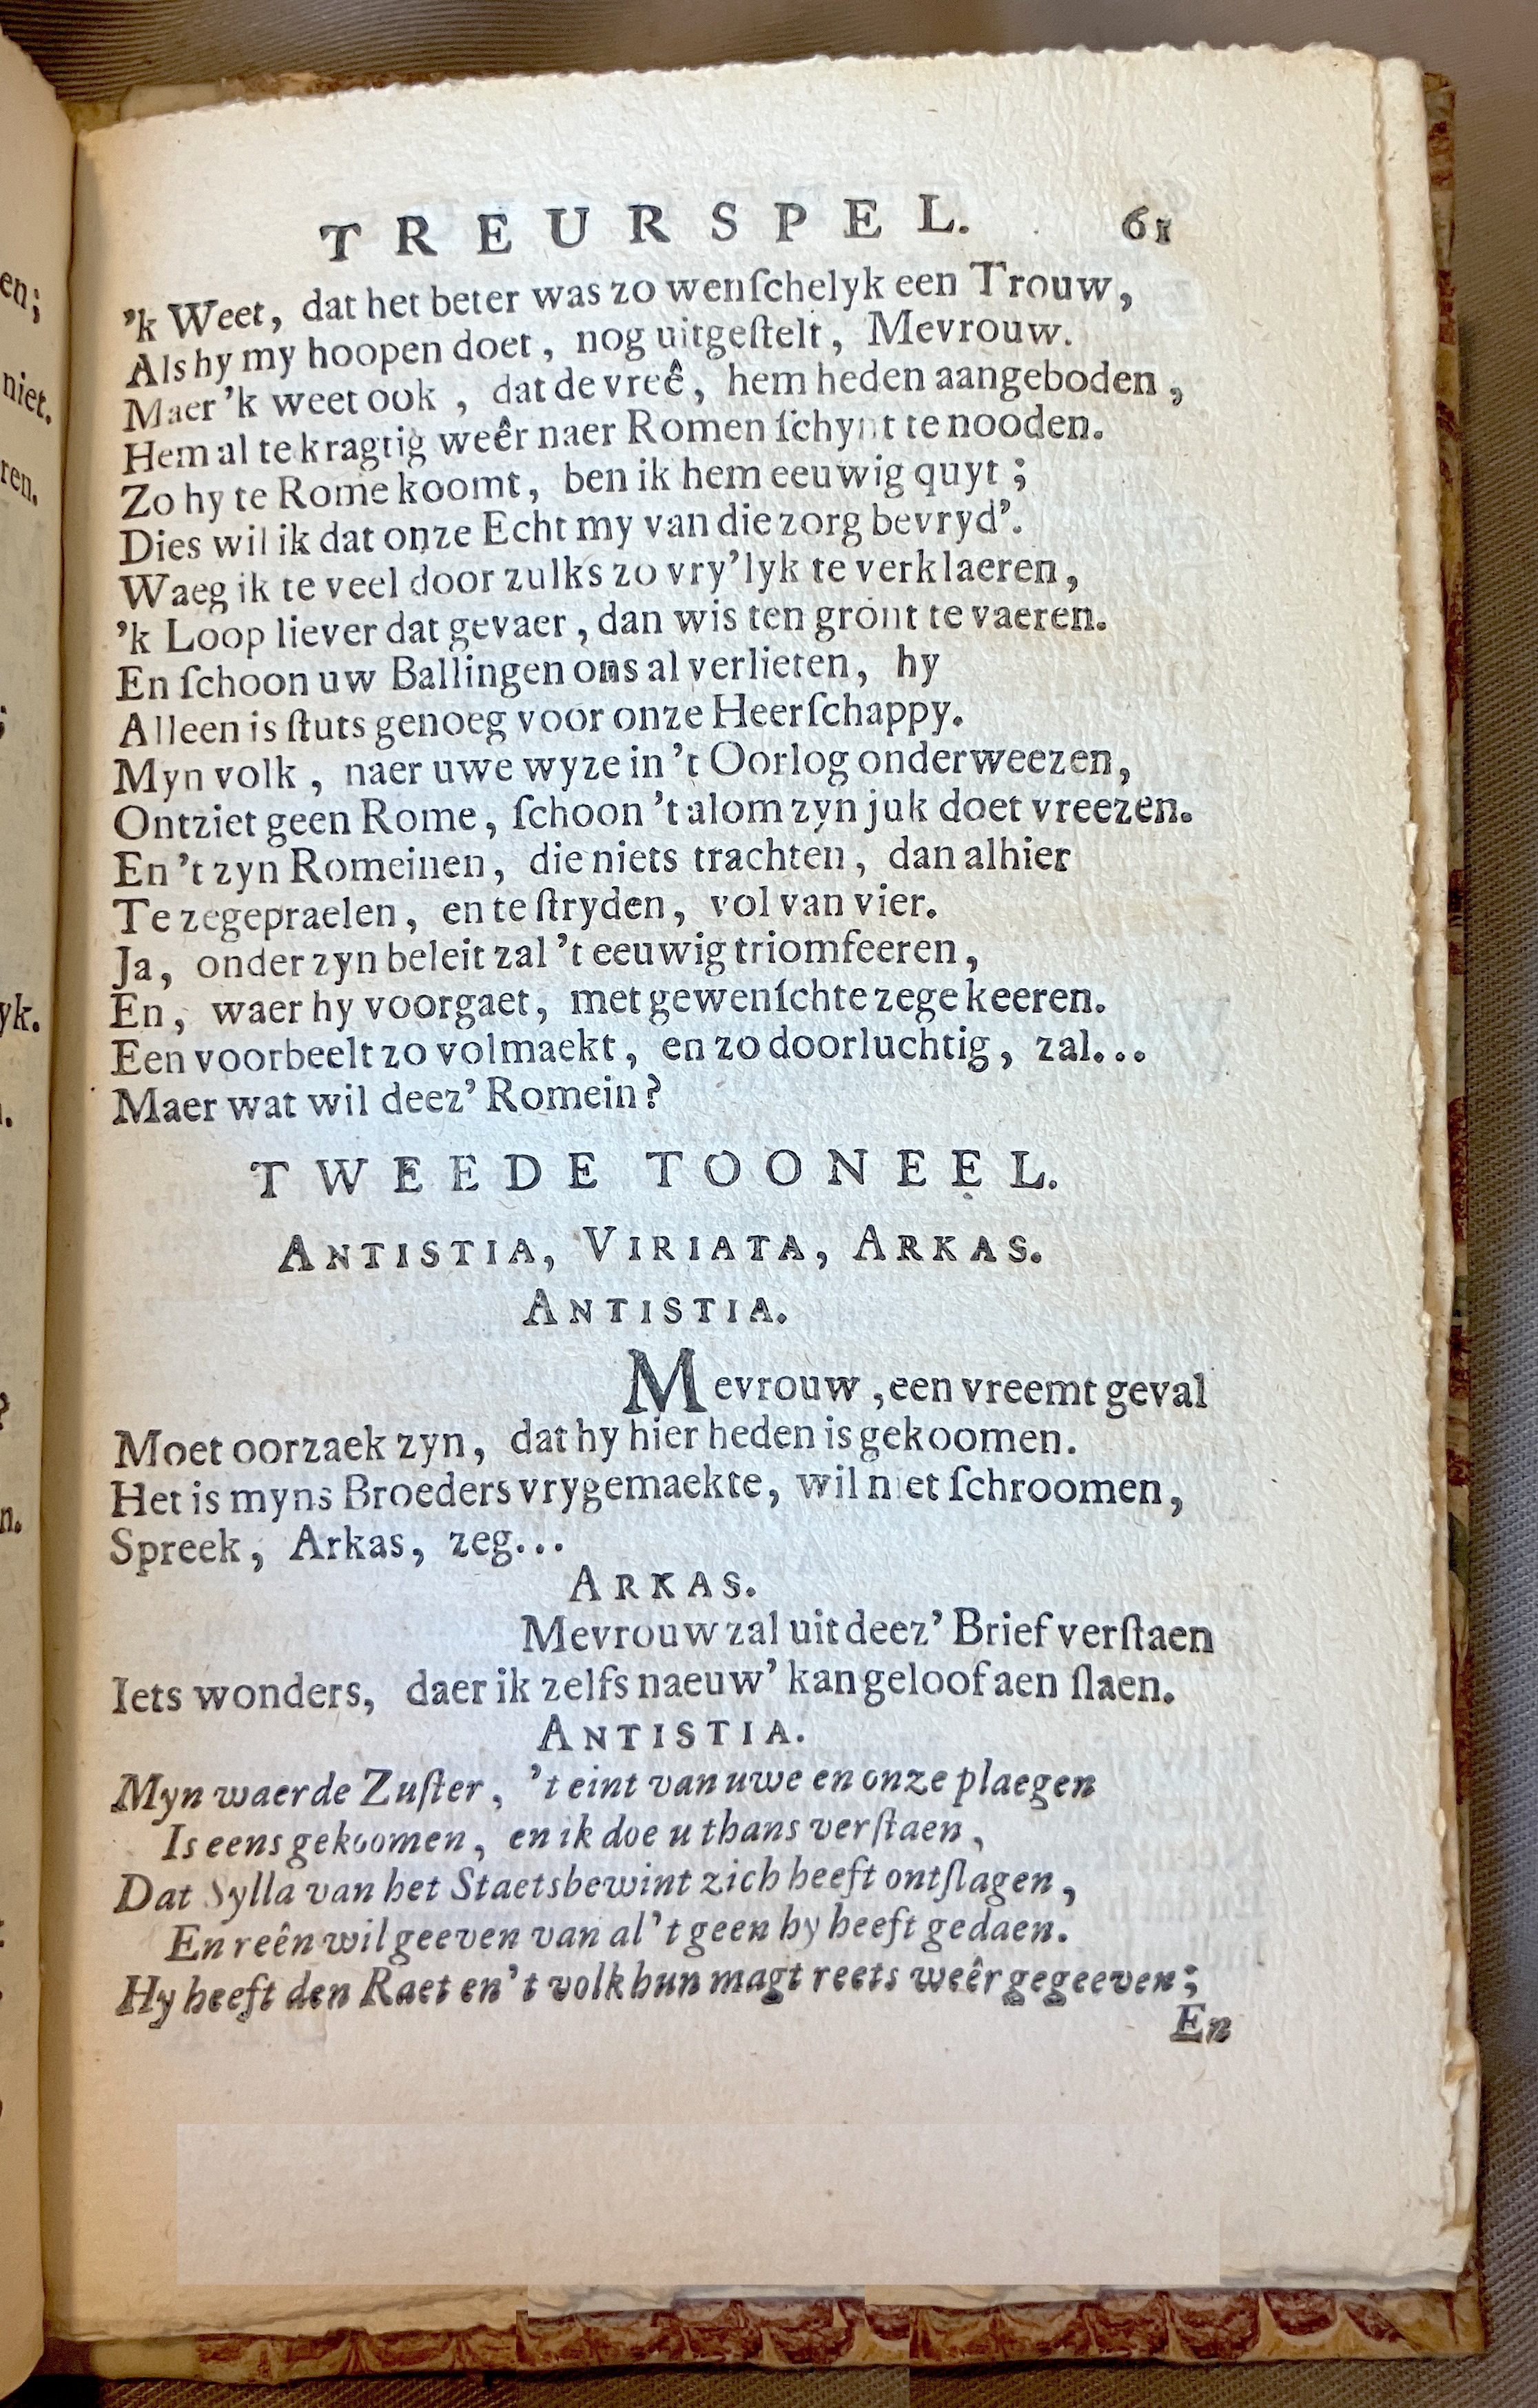 en;
niet.
ren.
yk.
?
n.
TREURSPEL. 61
'k Weet, dat het beter was zo wenſchelyk een Trouw,
Als hy my hoopen doet, nog uitgeſtelt, Mevrouw.
Maer 'k weet ook, dat de vreê, hem heden aangeboden,
Hem al te kragtig weêr naer Romen ſchynt te nooden.
Zo hy te Rome koomt, ben ik hem eeuwig quyt;
Dies wil ik dat onze Echt my van die zorg bevryd'.
Waeg ik te veel door zulks zo vry'lyk te verklaeren,
'k Loop liever dat gevaer, dan wis ten gront te vaeren.
En ſchoon uw Ballingen ons al verlieten, hy
Alleen is ſtuts genoeg voor onze Heerſchappy.
Myn volk, naer uwe wyze in 't Oorlog onderweezen,
Ontziet geen Rome, ſchoon 't alom zyn juk doet vreezen.
En 't zyn Romeinen, die niets trachten, dan alhier
Te zegepraelen, en te ſtryden, vol van vier.
Ja, onder zyn beleit zal 't eeuwig triomfeeren,
En, waer hy voorgaet, met gewenſchte zege keeren.
Een voorbeelt zo volmaekt, en zo doorluchtig, zal...
Maer wat wil deez' Romein?
TWEEDE TOONEEL.
ANTISTIA, VIRIATA, ARKAS.
ANTISTIA.
Mevrouw, een vreemt geval
Moet oorzaek zyn, dat hy hier heden is gekoomen.
Het is myns Broeders vrygemaekte, wil niet ſchroomen,
Spreek, Arkas, zeg...
ARKAS.
Mevrouw zal uit deez' Brief verſtaen
Iets wonders, daer ik zelfs naeuw' kan geloof aen ſlaen.
ANTISTIA.
Myn waerde Zuſter, 't eint van uwe en onze plaegen
Is eens gekoomen, en ik doe u thans verſtaen,
Dat Sylla van het Staetsbewint zich heeft ontſlagen,
En reên wil geeven van al 't geen hy heeft gedaen.
Hy heeft den Raet en 't volk hun magt reets weêr gegeeven;
En